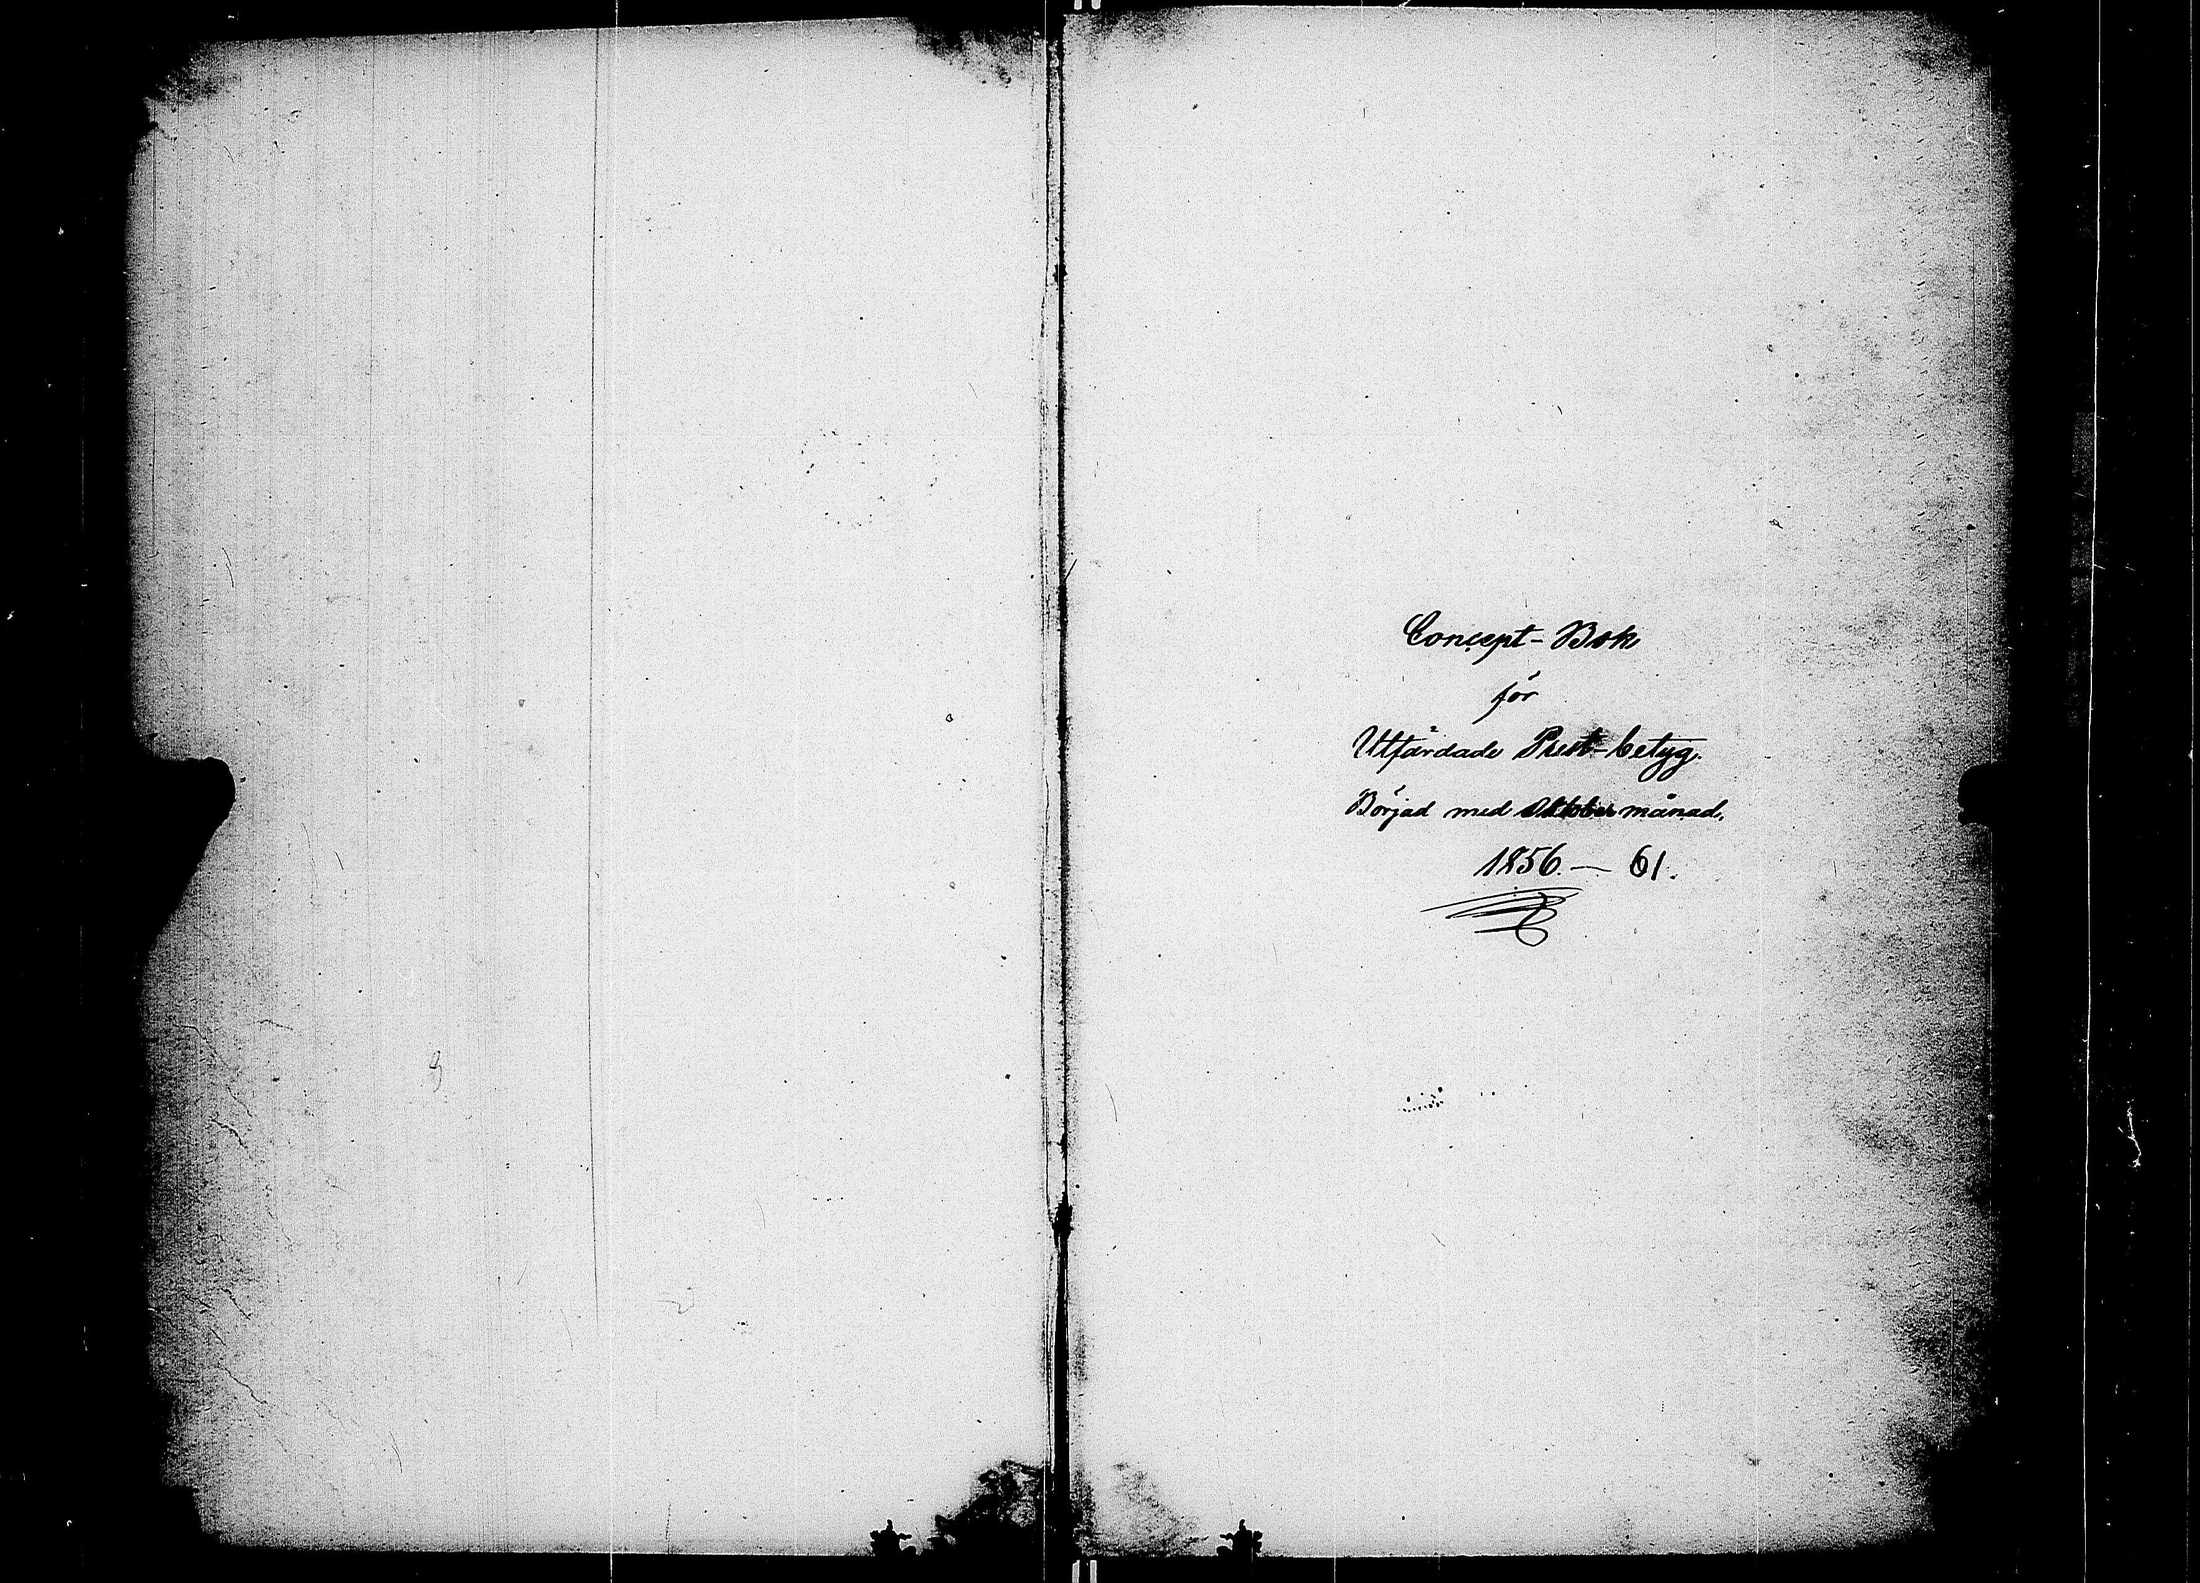 Concept-Bok
för
Utfärdade Prest-betyg.
Börjad med Oktober månad.
1856. — 61.